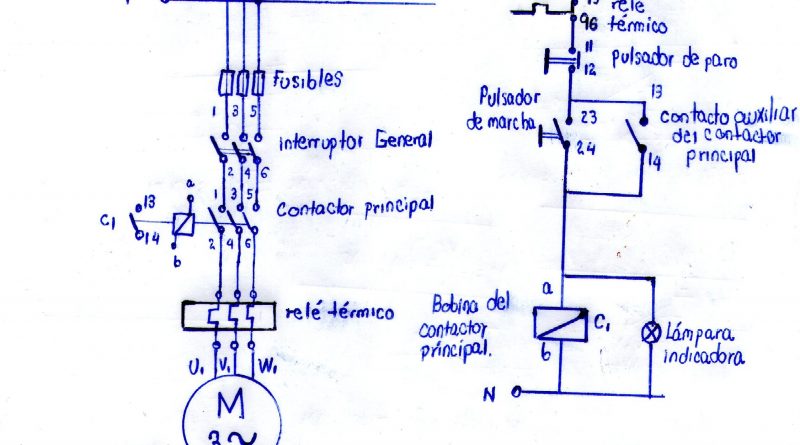 Fusibles
1 3 5
Interruptor General
2 4 6
1 3 5
Contactor principal
a
13
C1
14
b
2 4 6
relé térmico
U1 V1 W1
M
3~
relé
96 térmico
11
12
pulsador de paro
Pulsador
de marcha
23
24
13
14
contacto auxiliar
del contactor
principal
a
Bobina del
contactor
principal.
C1
b
Lámpara
indicadora
N